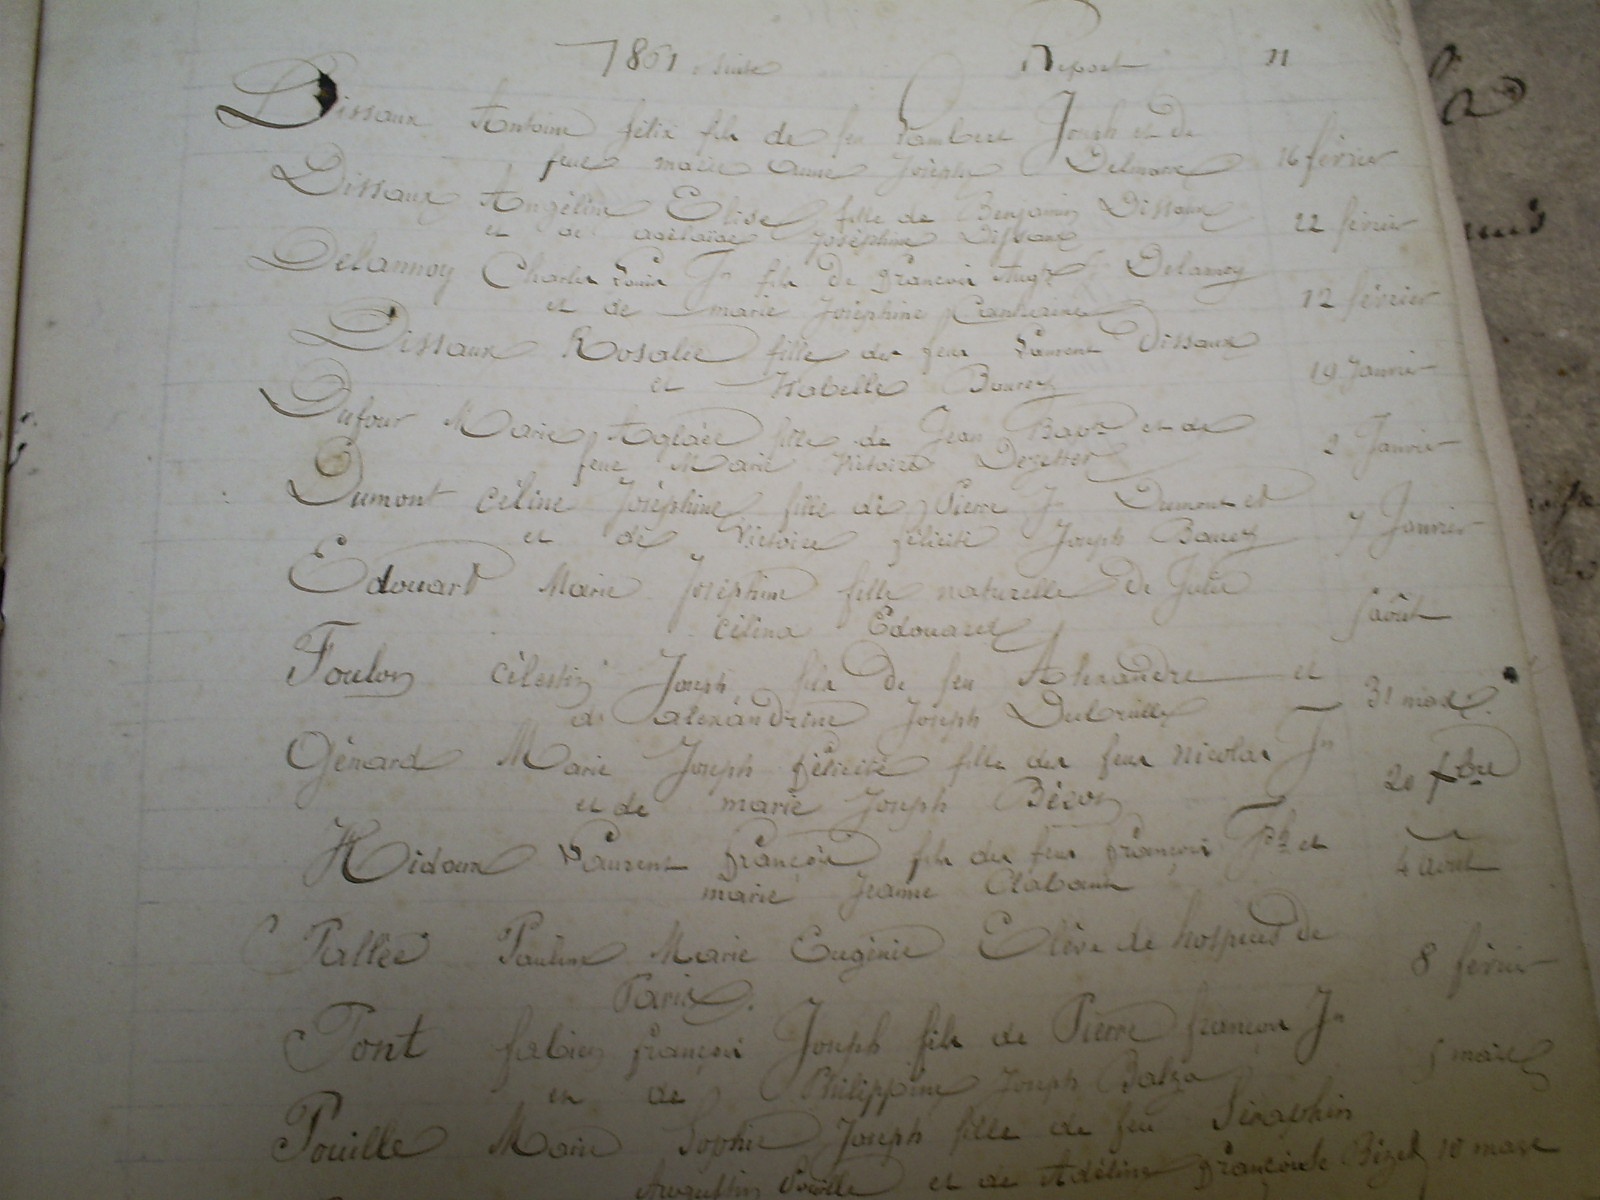 1861 suite Report 11
Dissaux Antoine félix fils de feu Lambert Joseph et de
feue marie Anne Josèphe Delmarre 16 février
Dissaux Angéline Elise fille de Benjamin Dissaux
et de adélaïde Joséphine Dissaux 22 février
Delannoy Charles Louis Jh fils de françois Augte Delannoy
et de marie Joséphine 12 février
Dissaux Rosalie fille des feus Laurent Dissaux
et Isabelle Bourey 19 Janvier
Dufour Marie Aglaée fille de Jean Bapte et de
feue Marie Victoire Dezetter 2 Janvier
Dumont céline Joséphine fille de Pierre Jh Dumont et
et de Victoire félicité Joseph Bauez 7 Janvier
Edouart Marie Joséphine fille naturelle de Julie
célina Edouart août
Foulon célestin Joseph fils de feu Alexandre et
de alexandrine Joseph Dubrulle 31 mars
Génard Marie Joseph félicité fille des feus Nicolas Jh
et de marie Joseph 20 fbre
Hidoux Laurent françois fils des feus françois Jph et
marie Jeanne Clabaux 4 août
Pallée Pauline Marie Eugénie Elève de hospices de
Paris. 8 février
Pont fabien françois Joseph fils de Pierre françois Jh
et de Philippine Joseph Balza mars
Pouille Marie Sophie Joseph fille de feu Séraphin
Augustin Pouille et de Adéline françoise Bizet 10 mars